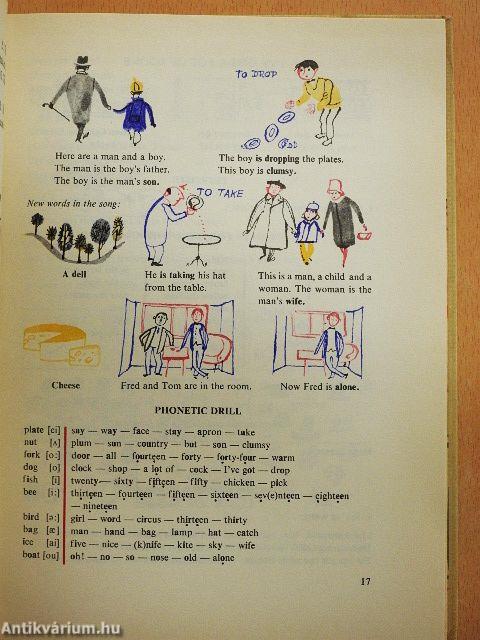 TO DROP
Here are a man and a boy.
The man is the boy's father.
The boy is the man's son.
The boy is dropping the plates.
This boy is clumsy.
New words in the song:
TO TAKE
A dell
He is taking his hat
from the table.
This is a man, a child and a
woman. The woman is the
man's wife.
Cheese
Fred and Tom are in the room.
Now Fred is alone.
PHONETIC DRILL
plate [ei] say — way — face — stay — apron — take
nut [ʌ] plum — sun — country — but — son — clumsy
fork [o:] door — all — fourteen — forty — forty-four — warm
dog [o] clock — shop — a lot of — cock — I've got — drop
fish [i] twenty — sixty — fifteen — fifty — chicken — pick
bee [i:] thirteen — fourteen — fifteen — sixteen — sev(e)nteen — eighteen
— nineteen
bird [ə:] girl — word — circus — thirteen — thirty
bag [æ] man — hand — bag — lamp — hat — catch
ice [ai] five — nice — (k)nife — kite — sky — wife
boat [ou] oh! — no — so — nose — old — alone
17
Antikvárium.hu